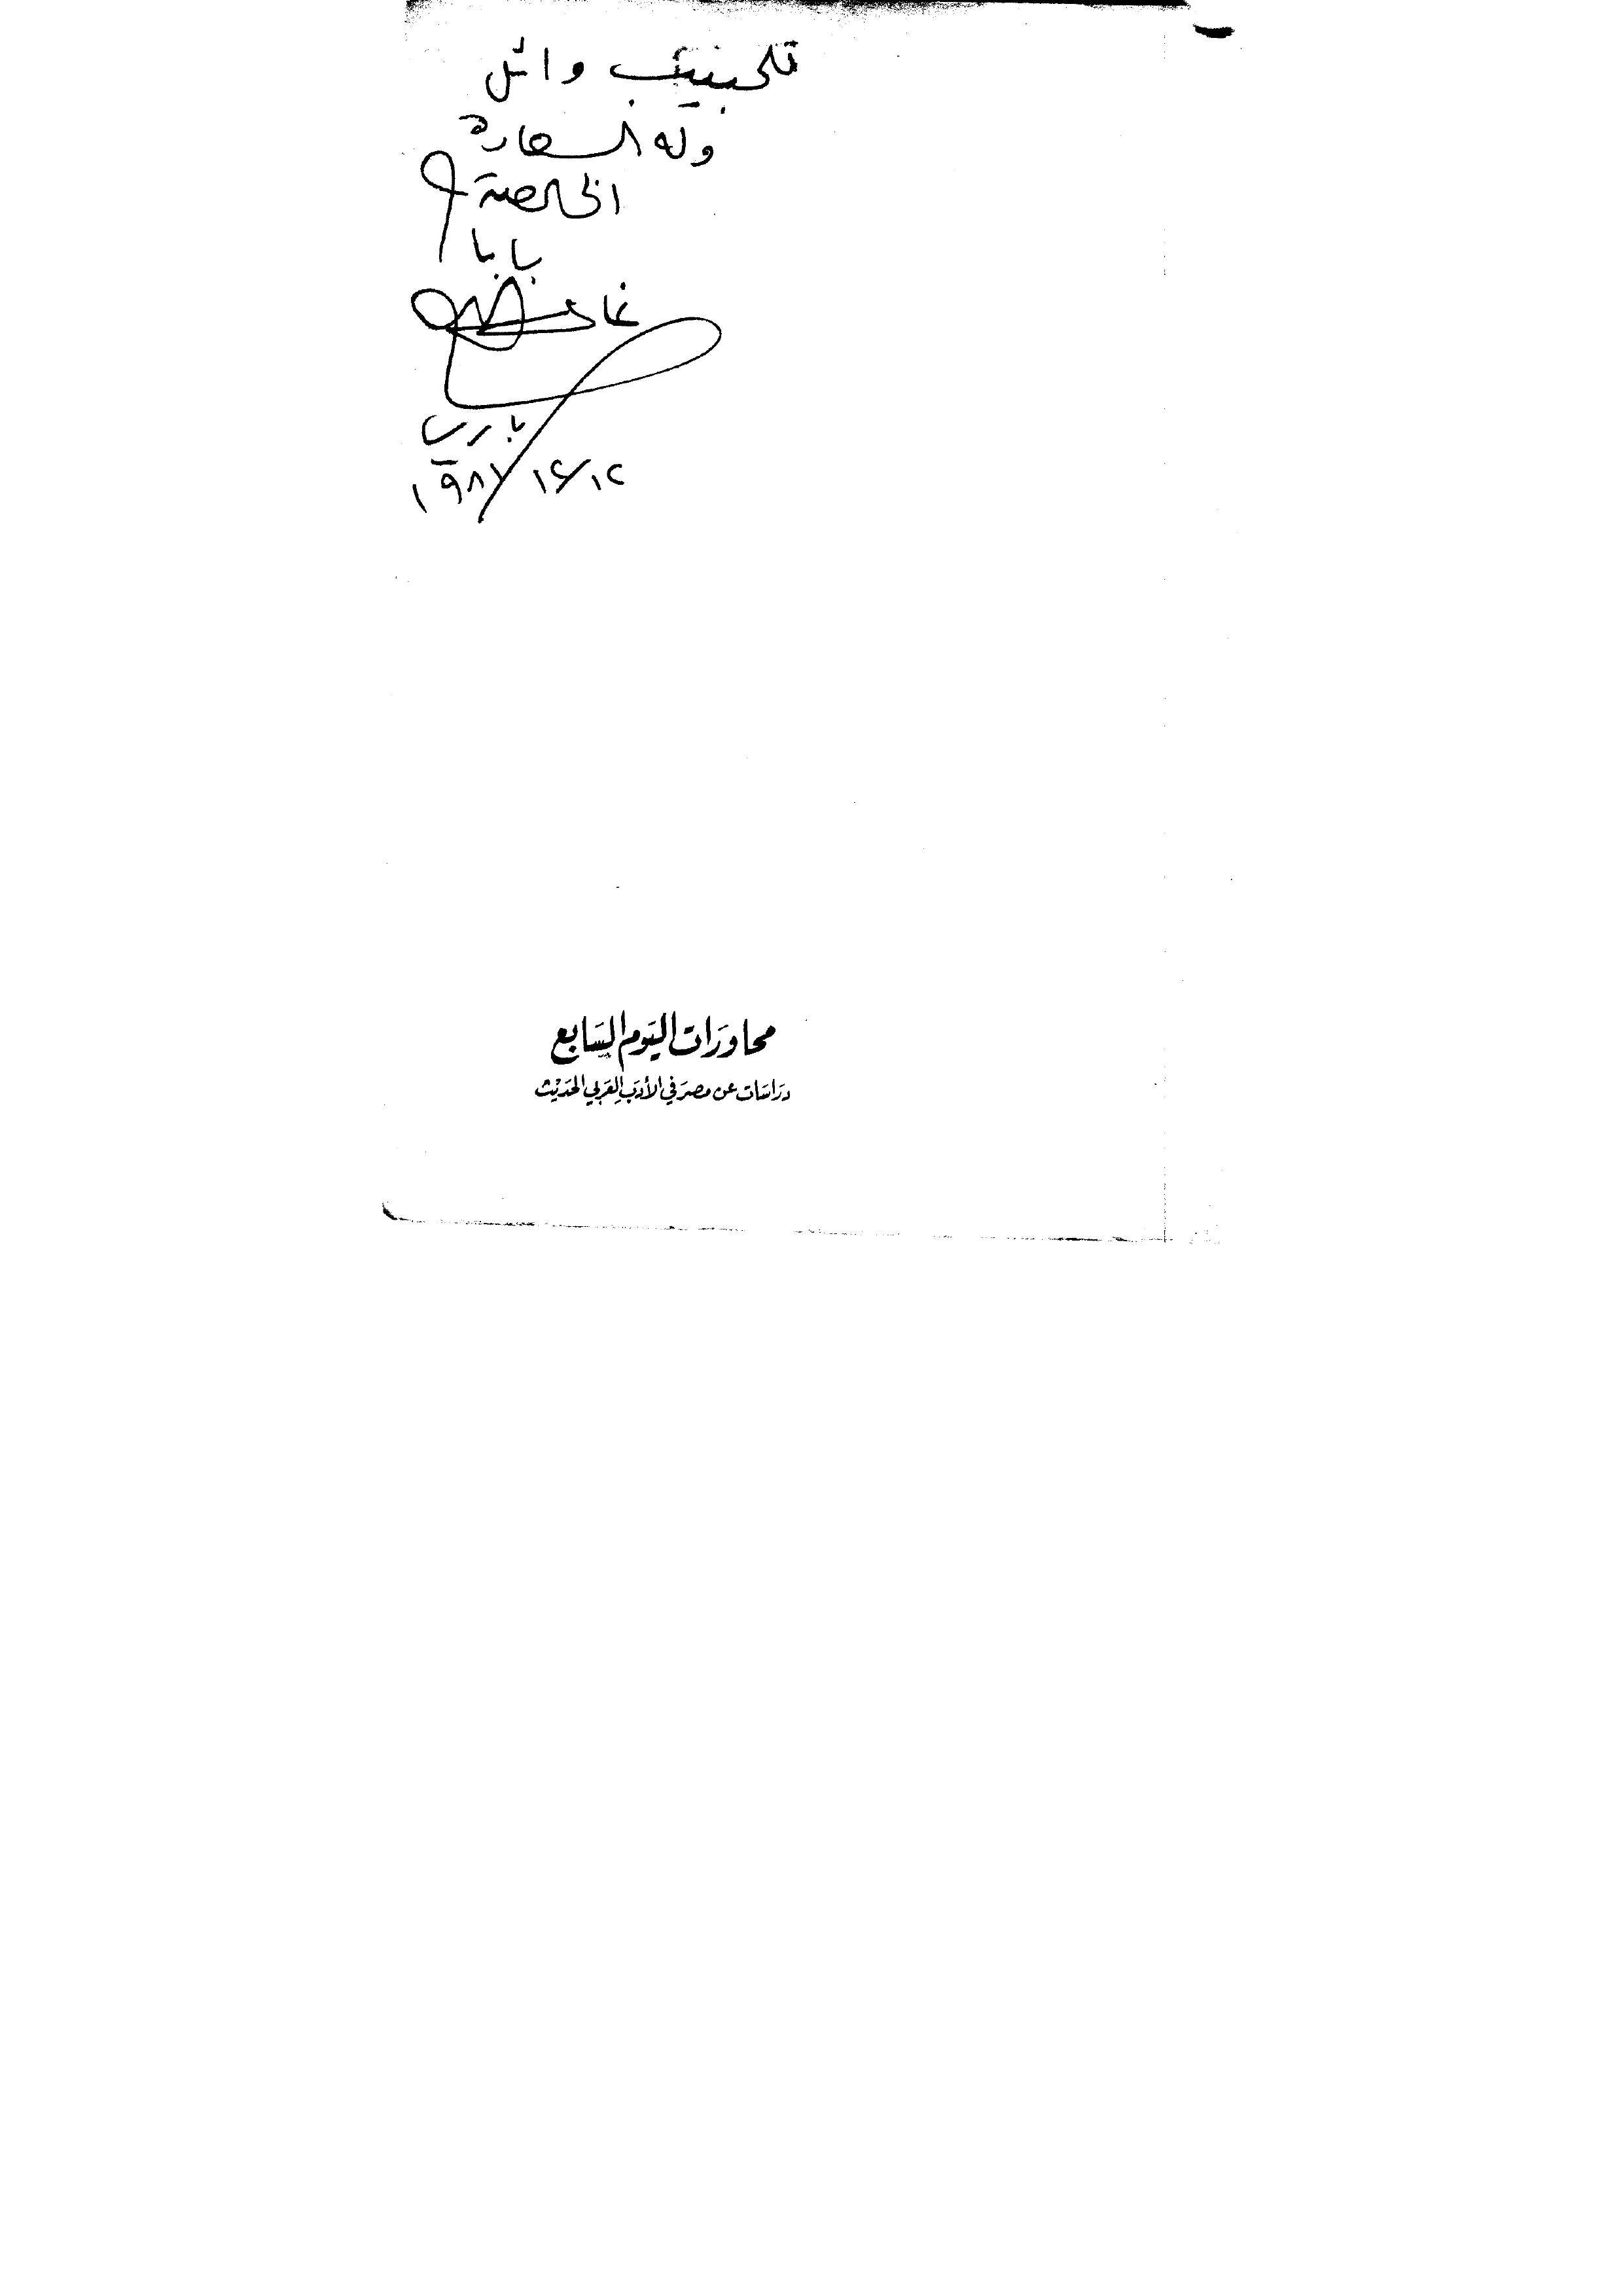 للحبيب وائل
وله السعادة
الخالصة
بابا
غالي
باريس
١٩٨٧/١٢/١٤
محاورات اليوم السابع
دراسات عن مصر في الأدب العربي الحديث